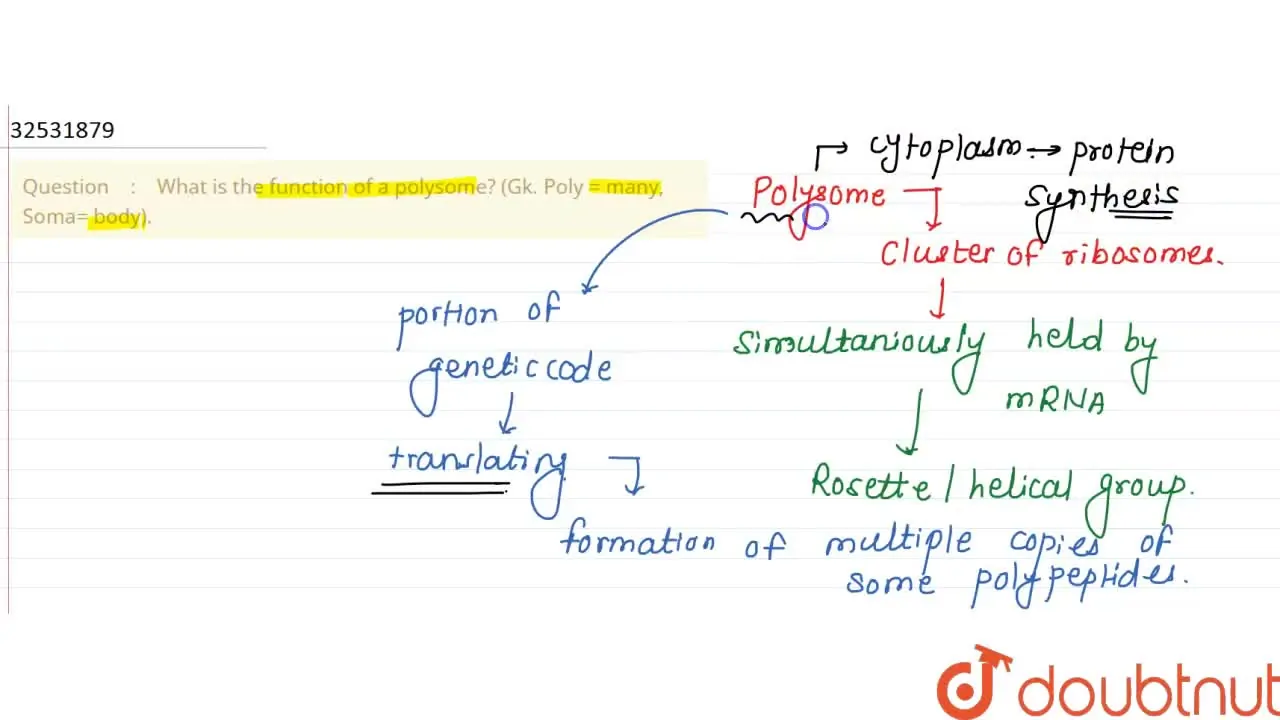 32531879
Question : What is the function of a polysome? (Gk. Poly = many,
Soma= body).
cytoplasm. → protein
synthesis
Polysome
Cluster of ribosomes.
simultaniously held by
mRNA
Rosette / helical group.
portion of
genetic code
translating
formation of multiple copies of
some polypeptides.
doubtnut